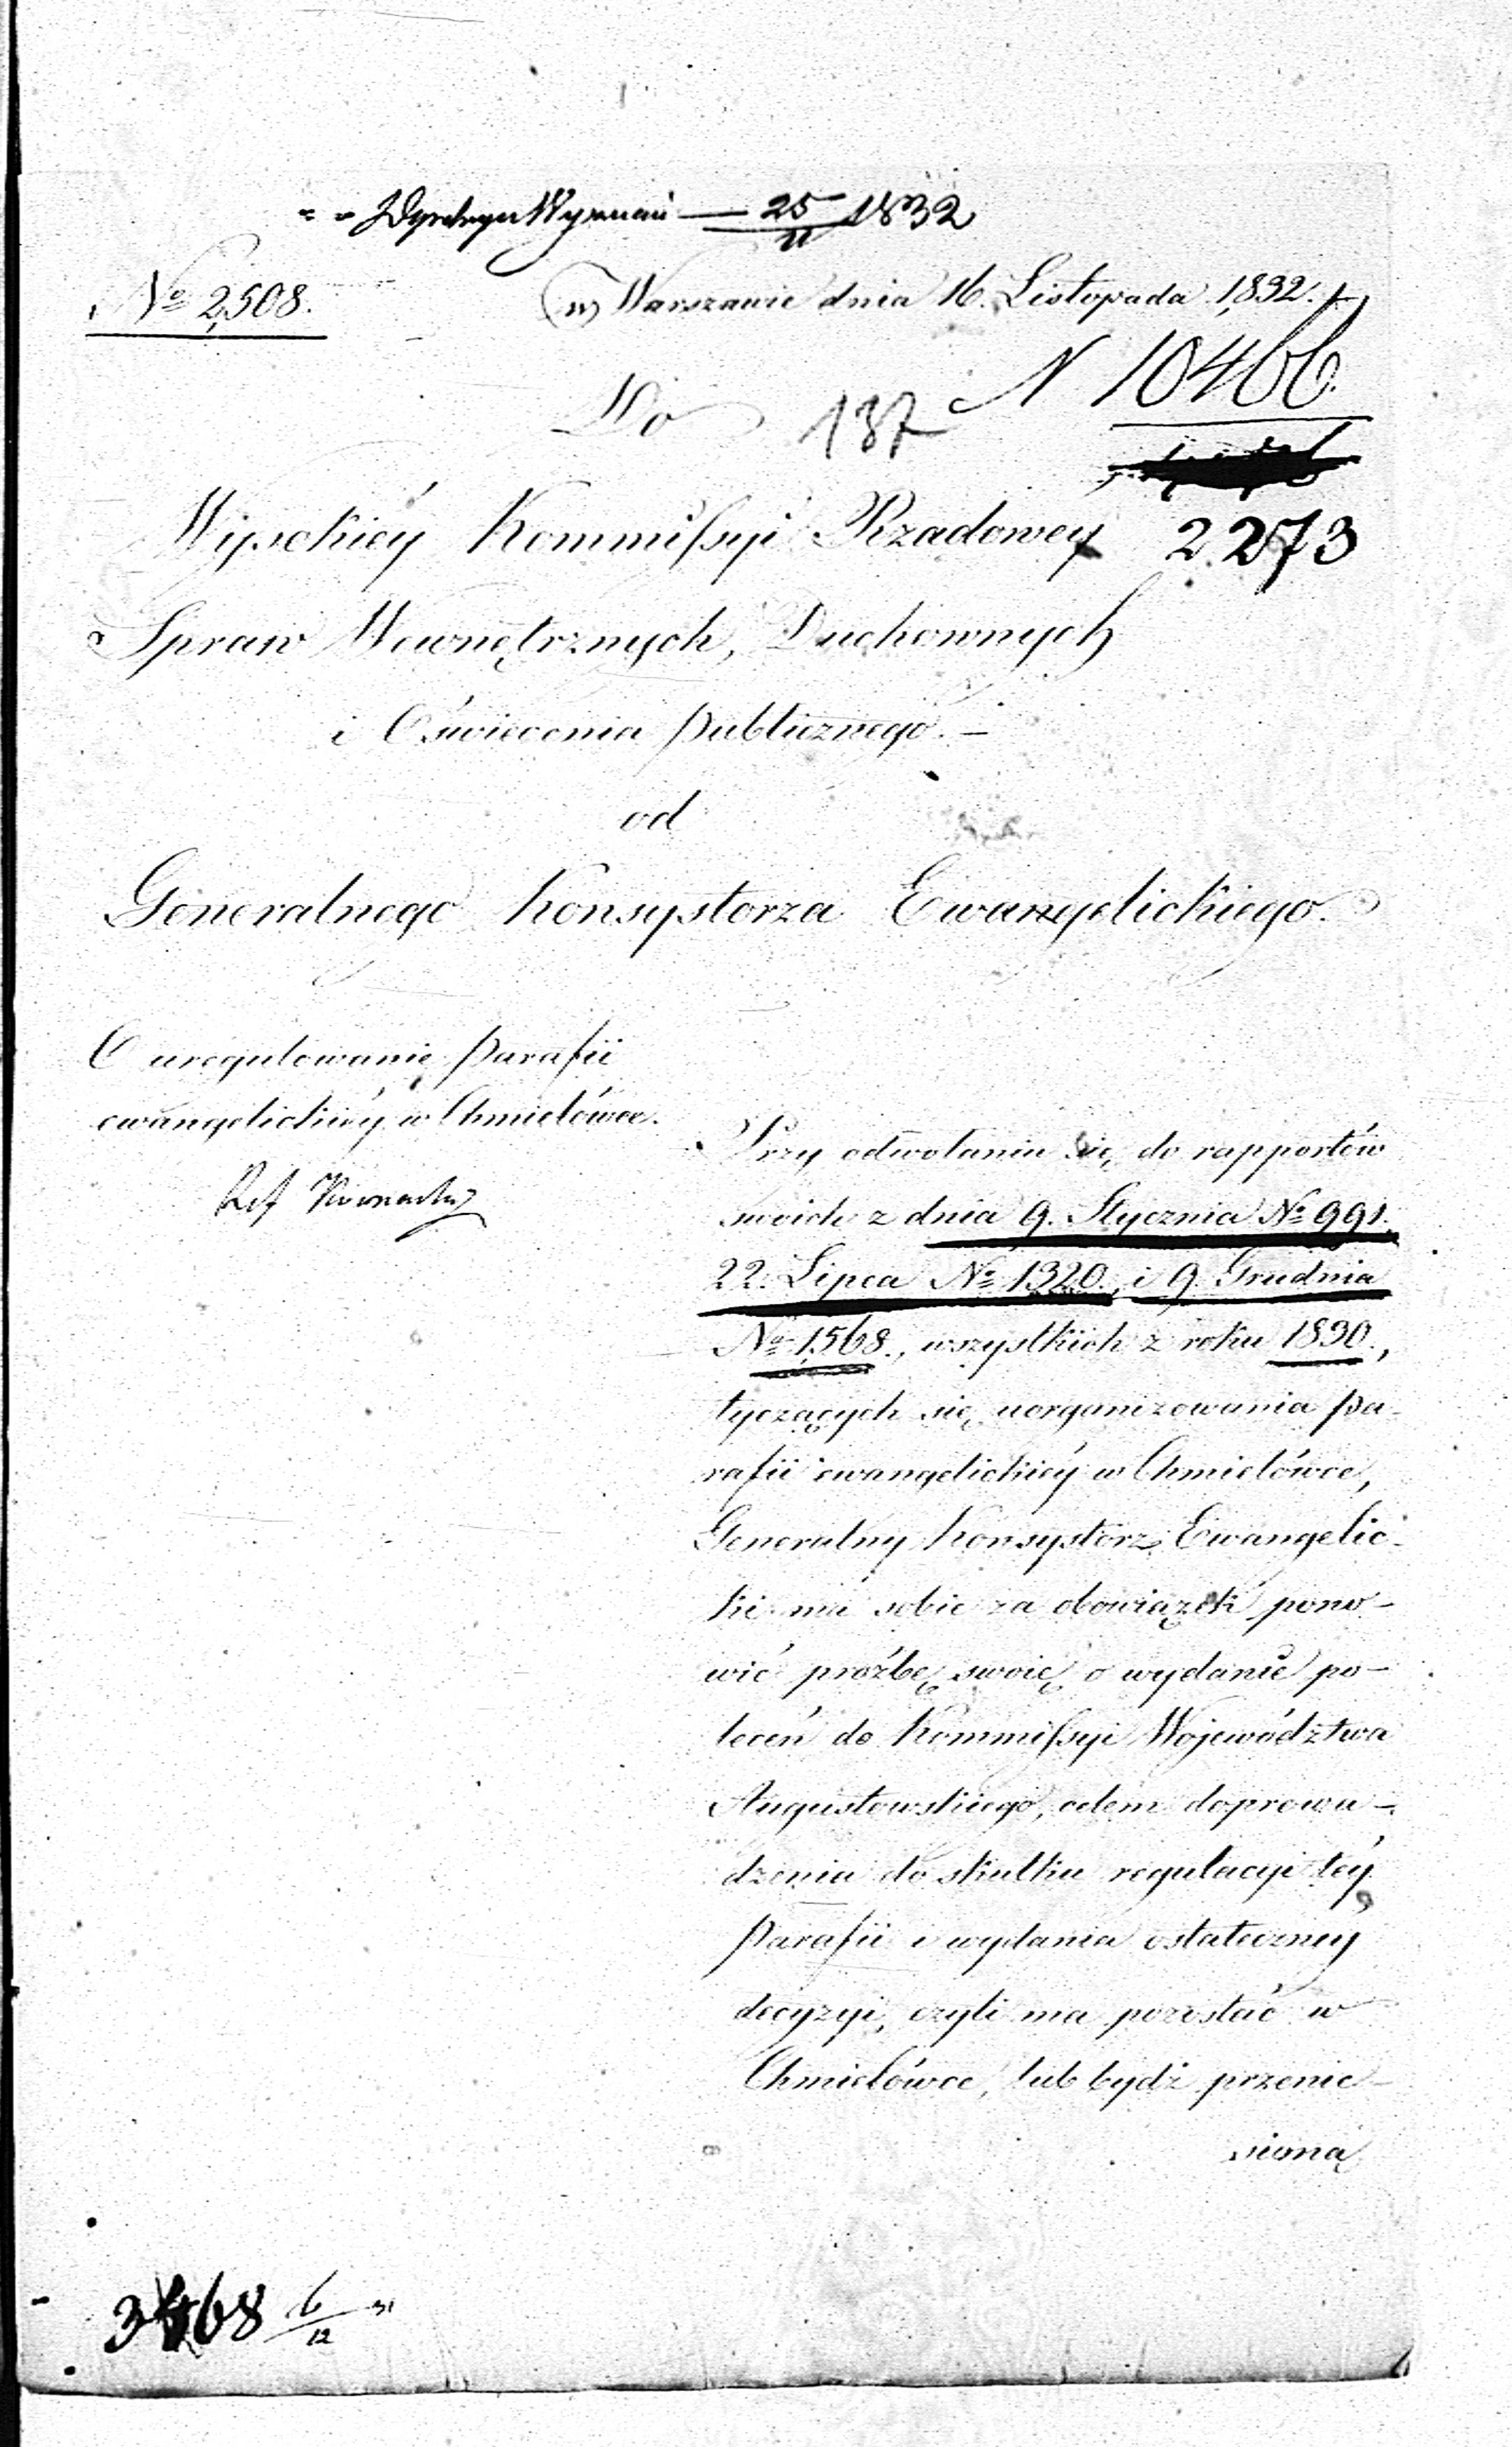 25/11 1832
№ 2,508.
w Warszawie dnia 16. Listopada 1,832. r.
N 10466.
Do
137
Wysokiéy Kommissyi Rządowey
2273
Spraw Wewnętrznych, Duchownych
i Oświecenia publicznego. –
od
Generalnego Konsystorza Ewangelickiego.
O uregulowanie parafii
ewangelickiéy w Chmielówce.
Ref
Przy odwołaniu się do rapportów
swoich z dnia 9. Stycznia № 991.
22. Lipca № 1320., i 9. Grudnia
№ 1,568., wszystkich z roku 1830.,
tyczących się uorganizowania pa-
rafii ewangelickiéy w Chmielówce,
Generalny Konsystorz Ewangelic-
ki ma sobie za obowiązek pono-
wić proźbę swoię o wydanie po-
leceń do Kommissyi Województwa
Augustowskiego, celem doprowa-
dzenia do skutku regulacyi téy
parafii i wydania ostateczney
decyzyi, czyli ma pozostać w
Chmielówce, lub bydź przenie-
sioną
6/12